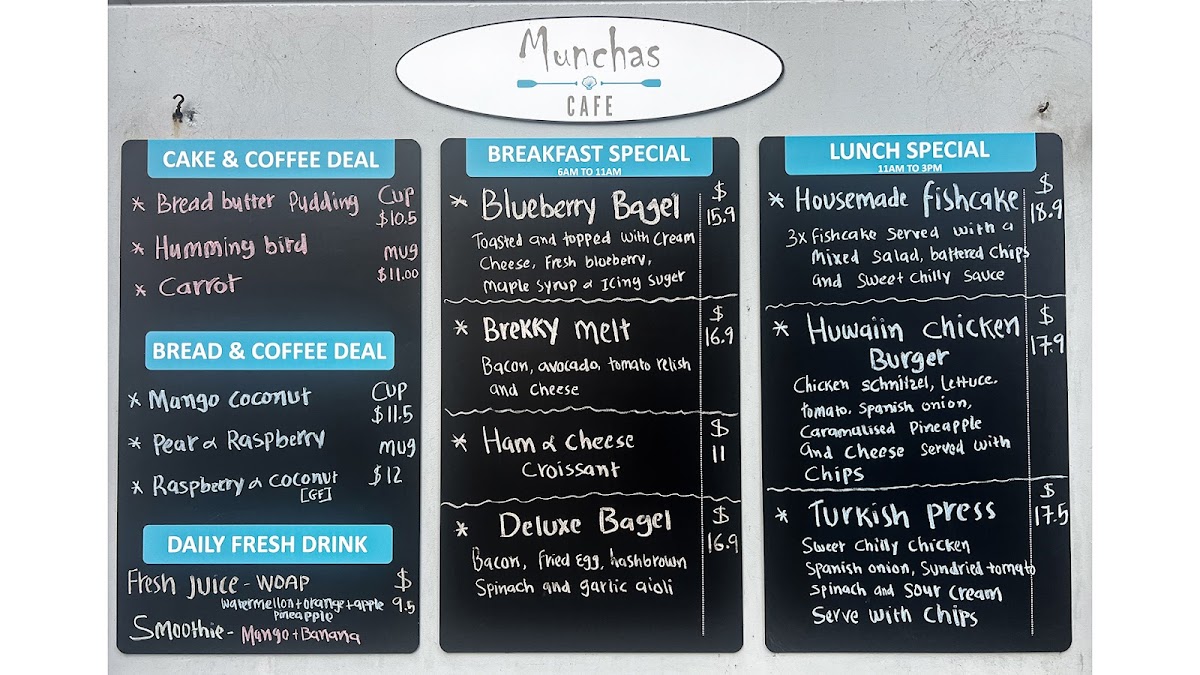 Munchas
CAFE
CAKE & COFFEE DEAL
* Bread butter Pudding
Cup
$10.5
* Humming bird
mug
$11.00
* Carrot
BREAD & COFFEE DEAL
* Mango coconut
Cup
$11.5
* Pear & Raspberry
mug
$12
* Raspberry & coconut
[GF]
DAILY FRESH DRINK
Fresh Juice - WOAP
$
9.5
watermellon+orange+apple
pineapple
Smoothie - Mango+Banana
BREAKFAST SPECIAL
6AM TO 11AM
* Blueberry Bagel
$
15.9
Toasted and topped with Cream
Cheese, fresh blueberry,
maple syrup & Icing suger
* Brekky melt
$
16.9
Bacon, avocado, tomato relish
and cheese
* Ham & cheese
Croissant
$
11
* Deluxe Bagel
$
16.9
Bacon, fried egg, hashbrown
Spinach and garlic aioli
LUNCH SPECIAL
11AM TO 3PM
* Housemade fishcake
$
18.9
3x fishcake served with a
mixed salad, battered chips
and sweet chilly sauce
* Huwaiin chicken
Burger
$
17.9
Chicken schnitzel, lettuce.
tomato. spanish onion,
Caramalised Pineapple
and cheese served with
Chips
* Turkish press
$
17.5
Sweet chilly chicken
Spanish onion, sundried tomato
spinach and sour cream
Serve with Chips